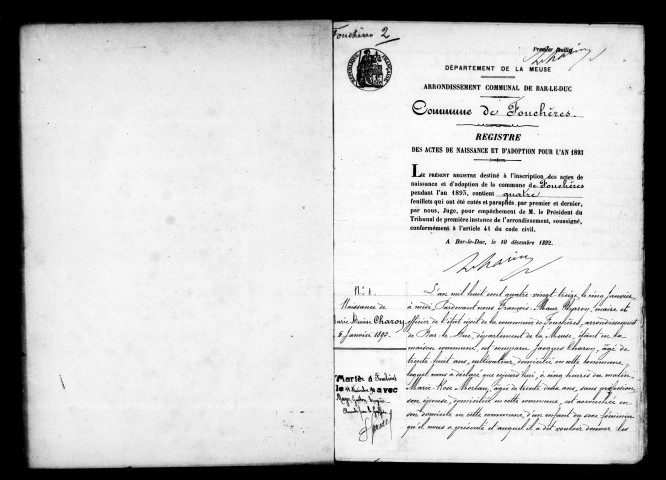 Fouchères 2
Premier feuillet
DÉPARTEMENT DE LA MEUSE
ARRONDISSEMENT COMMUNAL DE BAR-LE-DUC
Commune de Fouchères.
REGISTRE
DES ACTES DE NAISSANCE ET D'ADOPTION POUR L'AN 1893
LE PRÉSENT REGISTRE destiné à l'inscription des actes de
naissance et d'adoption de la commune de Fouchères
pendant l'an 1893, contient quatre
feuillets qui ont été cotés et paraphés, par premier et dernier,
par nous, Juge, pour empêchement de M. le Président du
Tribunal de première instance de l'arrondissement, soussigné,
conformément à l'article 41 du code civil.
A Bar-le-Duc, le 10 décembre 1892.
N° 1.
Naissance de
Charoy
5 Janvier 1893.
Marié à
le avec
L'an mil huit cent quatre-vingt-treize, le cinq janvier,
à midi, Pardevant nous François maire et
officier de l'état civil de la commune de Fouchères, arrondissement
de Bar-le-Duc, département de la Meuse, étant en la
maison commune, est comparu Jacques Charoy, âgé de
trente huit ans, cultivateur, domicilié en cette commune,
lequel nous a déclaré que cejourd'hui, à cinq heures du matin,
Marie Rose Morlau, âgée de trente deux ans, sans profession,
son épouse, domiciliée en cette commune, est accouchée en
son domicile en cette commune, d'un enfant du sexe féminin
qu'il nous a présenté et auquel il a dit vouloir donner les